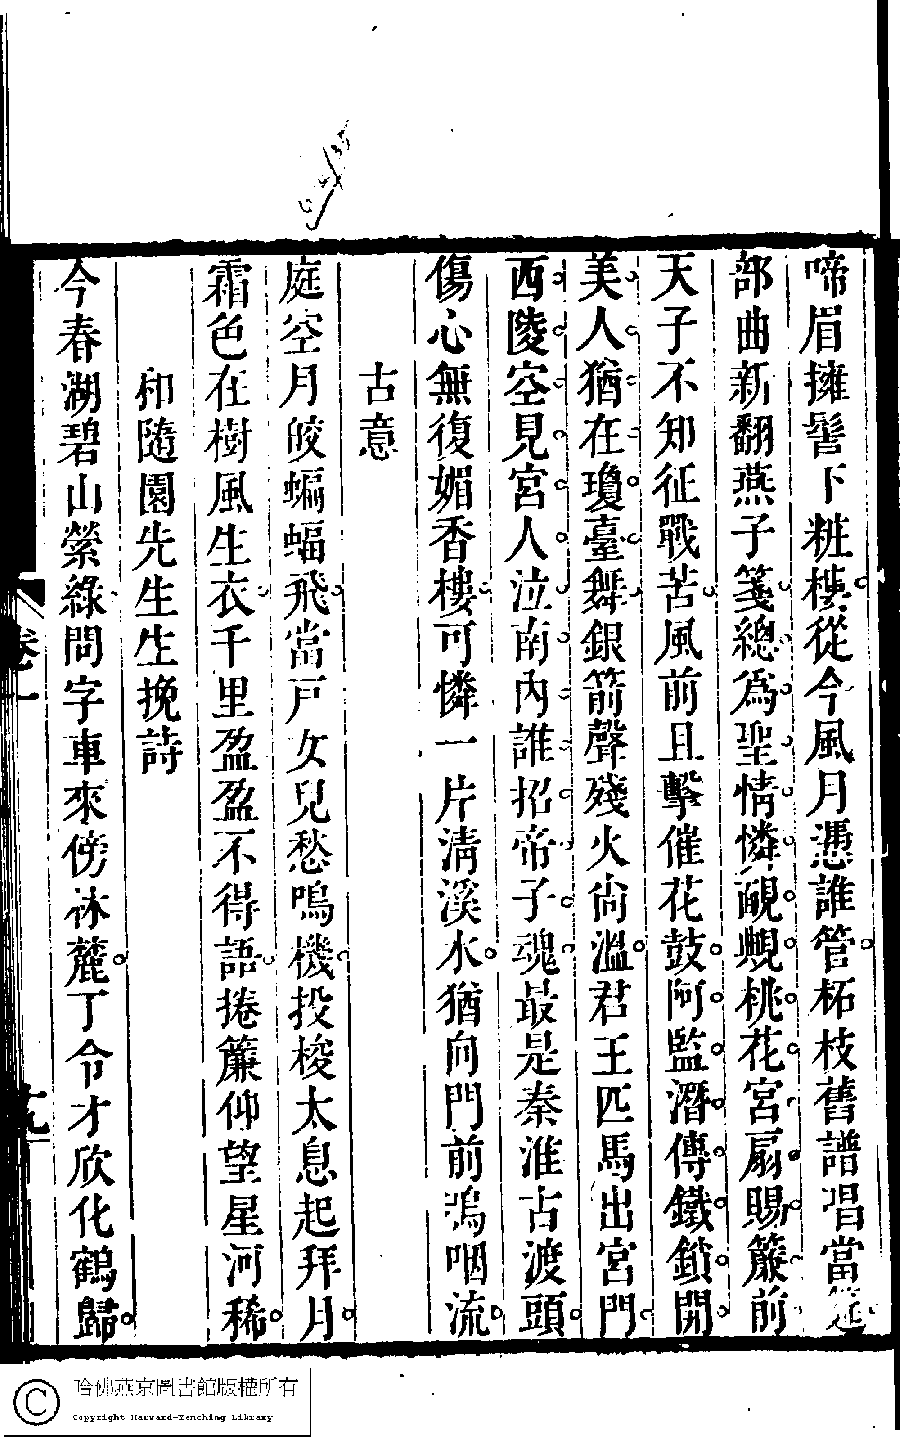 啼眉擁髻下粧樓從今風月憑誰管柘枝舊譜唱當筵
部曲新翻燕子箋總為聖情憐靦覥桃花宮扇賜簾前
天子不知征戰苦風前且擊催花鼓阿監潛傳鐵鎖開
美人猶在瓊臺舞銀箭聲殘火尙溫君王匹馬出宮門
西陵空見宮人泣南內誰招帝子魂最是秦淮古渡頭
傷心無復媚香樓可憐一片清溪水猶向門前嗚咽流
古意
庭空月皎蝙蝠飛當戸女兒愁鳴機投梭太息起拜月
霜色在樹風生衣千里盈盈不得語捲簾仰望星河稀
和隨園先生生挽詩
今春湖碧山縈綠問字車來傍林麓丁令才欣化鶴歸
卷一
十九
哈佛燕京圖書館版權所有
Copyright Harvard-Yenching Library